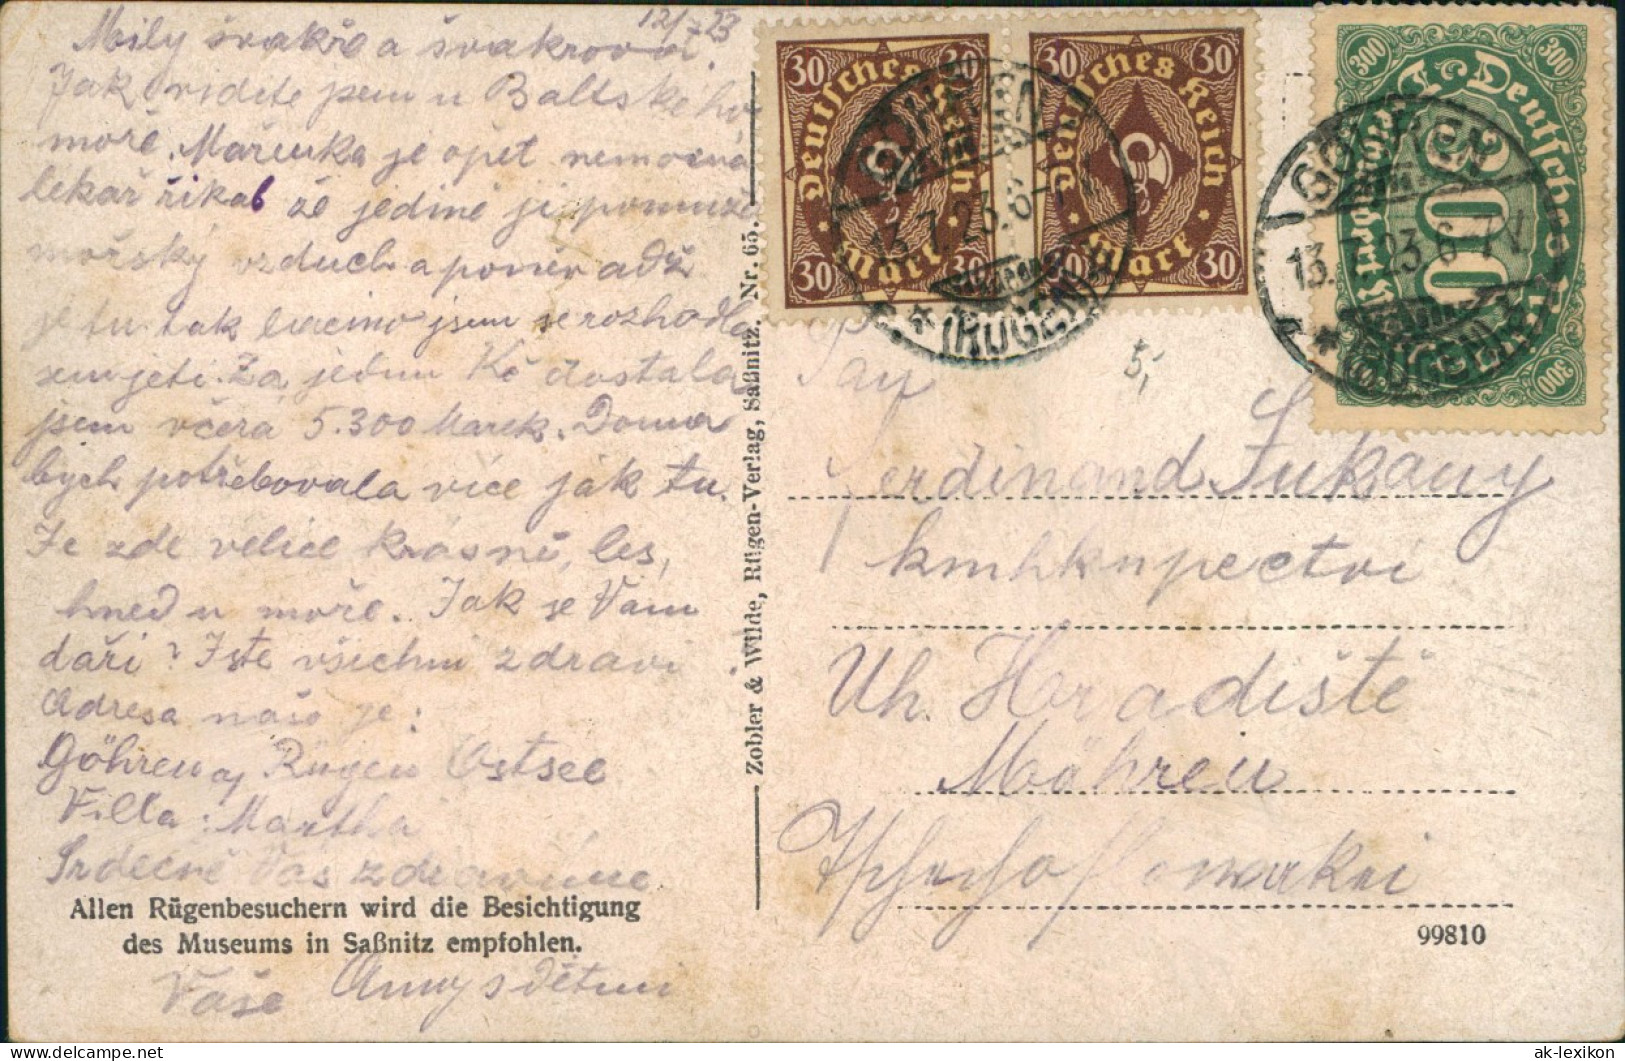 12/7 23
Milý švakře a švakrová.
Jak vidíte jsem u Baltského
moře. Mařenka je opět nemocná
lekař řikal že jedině ji pomuže
mořský vzduch a poněvadž
je tu tak lacino jsem se rozhodla
sem jeti. Za jednu Kč dostala
jsem včera 5.300 Marek. Doma
bych potřebovala více jak tu.
Je zde velice krásně, les,
hned u moře. Jak se Vám
daři? Jste všichni zdravi
Adresa naše je:
Göhren a/ Rügen Ostsee
Villa: Martha
Srdečně Vás zdravíme
Allen Rügenbesuchern wird die Besichtigung
des Museums in Saßnitz empfohlen.
Vaše Anny s dětmi
Zobler & Wilde, Rügen-Verlag, Saßnitz. Nr. 65.
30 30 30 30
Deutsches Reich
30 Mark 30
30 30
Deutsches Reich
30 Mark 30
GÖHREN
13.7.23. 6-7
* (RÜGEN)
300 300
Deutsches Reich
300
300
GÖHREN
13.7.23. 6-7 V.
* (RÜGEN) *
5,
Ferdinand
Uh. Hradiště
Mähren
99810
ak-lexikon